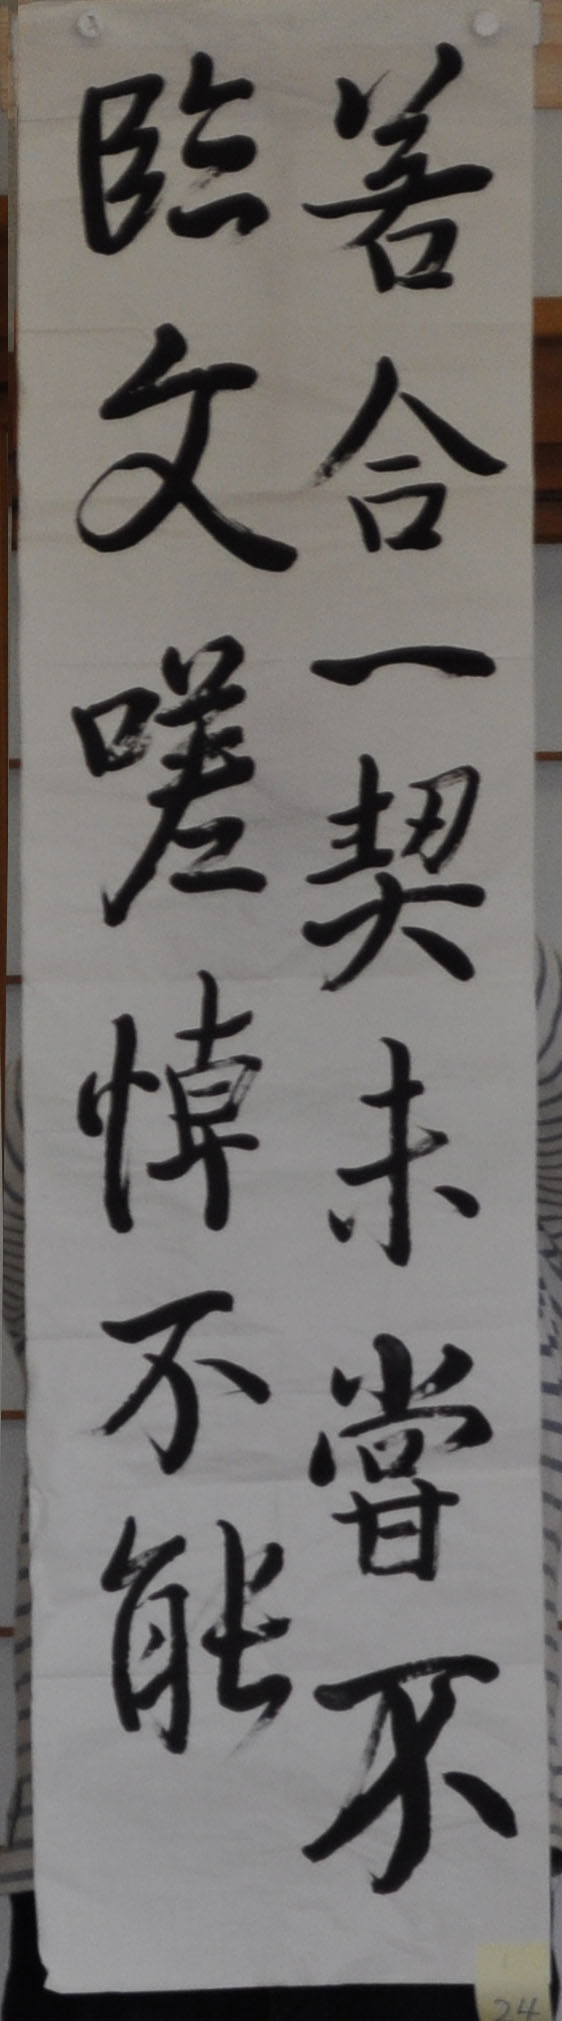 若合一契未嘗不
臨文嗟悼不能
24